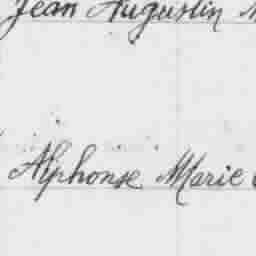 Jean Augustin
Alphonse Marie